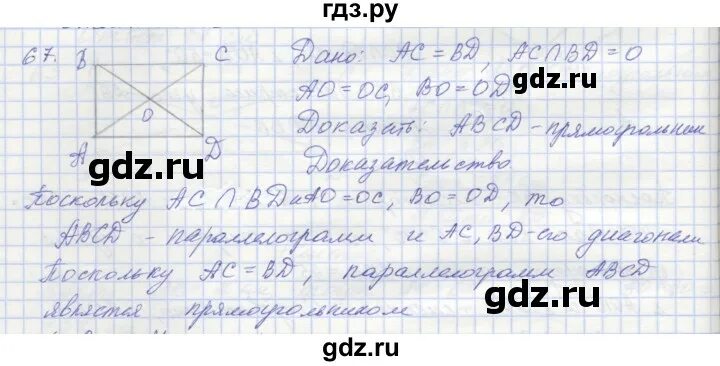 гдз.ру
67. B C Дано: AC = BD, AC∩BD = O
gdz.ru
O AO = OC, BO = OD
A D Доказать: ABCD - прямоугольник
Доказательство
gdz.ru
Поскольку AC∩BD и AO = OC, BO = OD, то
ABCD - параллелограмм и AC, BD - его диагонали
Поскольку AC = BD, параллелограмм ABCD
gdz.ru
является прямоугольником
gdz.ru